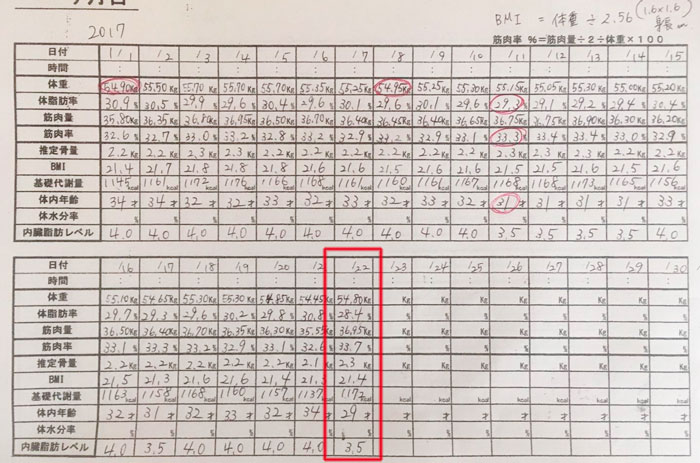 BMI = 体重 ÷ 2.56 (1.6×1.6)
身長 m
2017
筋肉率 %=筋肉量÷2÷体重×100
日付 1/1 /2 /3 /4 /5 /6 /7 /8 /9 /10 /11 /12 /13 /14 /15
時間 : : : : : : : : : : : : : : :
体重 54.90Kg 55.50Kg 55.70Kg 55.70Kg 55.70Kg 55.35Kg 55.25Kg 54.95Kg 55.25Kg 55.30Kg 55.15Kg 55.05Kg 55.30Kg 55.00Kg 55.20Kg
体脂肪率 30.9% 30.5% 29.9% 29.6% 30.4% 29.6% 30.1% 29.6% 30.1% 29.6% 29.3% 29.1% 29.2% 29.4% 30.4%
筋肉量 35.80Kg 36.35Kg 36.80Kg 36.95Kg 36.50Kg 36.70Kg 36.40Kg 36.45Kg 36.40Kg 36.65Kg 36.75Kg 36.75Kg 36.90Kg 36.30Kg 36.20Kg
筋肉率 32.6% 32.7% 33.0% 33.2% 32.8% 33.2% 32.9% 33.2% 32.9% 33.1% 33.3% 33.4% 33.4% 33.0% 32.9%
推定骨量 2.2Kg 2.2Kg 2.3Kg 2.3Kg 2.2Kg 2.2Kg 2.2Kg 2.2Kg 2.2Kg 2.2Kg 2.3Kg 2.3Kg 2.3Kg 2.2Kg 2.2Kg
BMI 21.4 21.7 21.8 21.8 21.8 21.6 21.6 21.5 21.6 21.6 21.5 21.5 21.6 21.5 21.6
基礎代謝量 1145kcal 1161kcal 1172kcal 1176kcal 1166kcal 1168kcal 1161kcal 1160kcal 1161kcal 1167kcal 1168kcal 1168kcal 1173kcal kcal kcal
体内年齢 34才 34才 32才 32才 33才 32才 33才 32才 33才 32才 31才 31才 31才 31才 33才
体水分率 % % % % % % % % % % % % % % %
内臓脂肪レベル 4.0 4.0 4.0 4.0 4.0 4.0 4.0 4.0 4.0 4.0 3.5 3.5 3.5 3.5 4.0
日付 1/16 /17 /18 /19 /20 /2 1/22 /23 /24 /25 /26 /27 /28 /29 /30
時間 : : : : : : : : : : : : : : :
体重 55.10Kg 54.65Kg 55.30Kg 55.30Kg 54.85Kg 54.45Kg 54.80Kg Kg Kg Kg Kg Kg Kg Kg Kg
体脂肪率 29.7% 29.3% 29.6% 30.2% 29.8% 30.8% 28.4% % % % % % % % %
筋肉量 36.50Kg 36.40Kg 36.70Kg 36.35Kg 36.30Kg 35.55Kg 36.95Kg Kg Kg Kg Kg Kg Kg Kg Kg
筋肉率 33.1% 33.3% 33.2% 32.9% 33.1% 32.6% 33.7% % % % % % % % %
推定骨量 2.2Kg 2.2Kg 2.2Kg 2.2Kg 2.2Kg 2.1Kg 2.3Kg Kg Kg Kg Kg Kg Kg Kg Kg
BMI 21.5 21.3 21.6 21.6 21.4 21.3 21.4
基礎代謝量 1163kcal 1158kcal 1168kcal 1160kcal 1157kcal 1137kcal 117 kcal kcal kcal kcal kcal kcal kcal kcal
体内年齢 32才 31才 32才 33才 32才 34才 29才 才 才 才 才 才 才 才 才
体水分率 % % % % % % % % % % % % % % %
内臓脂肪レベル 4.0 3.5 4.0 4.0 4.0 4.0 3.5